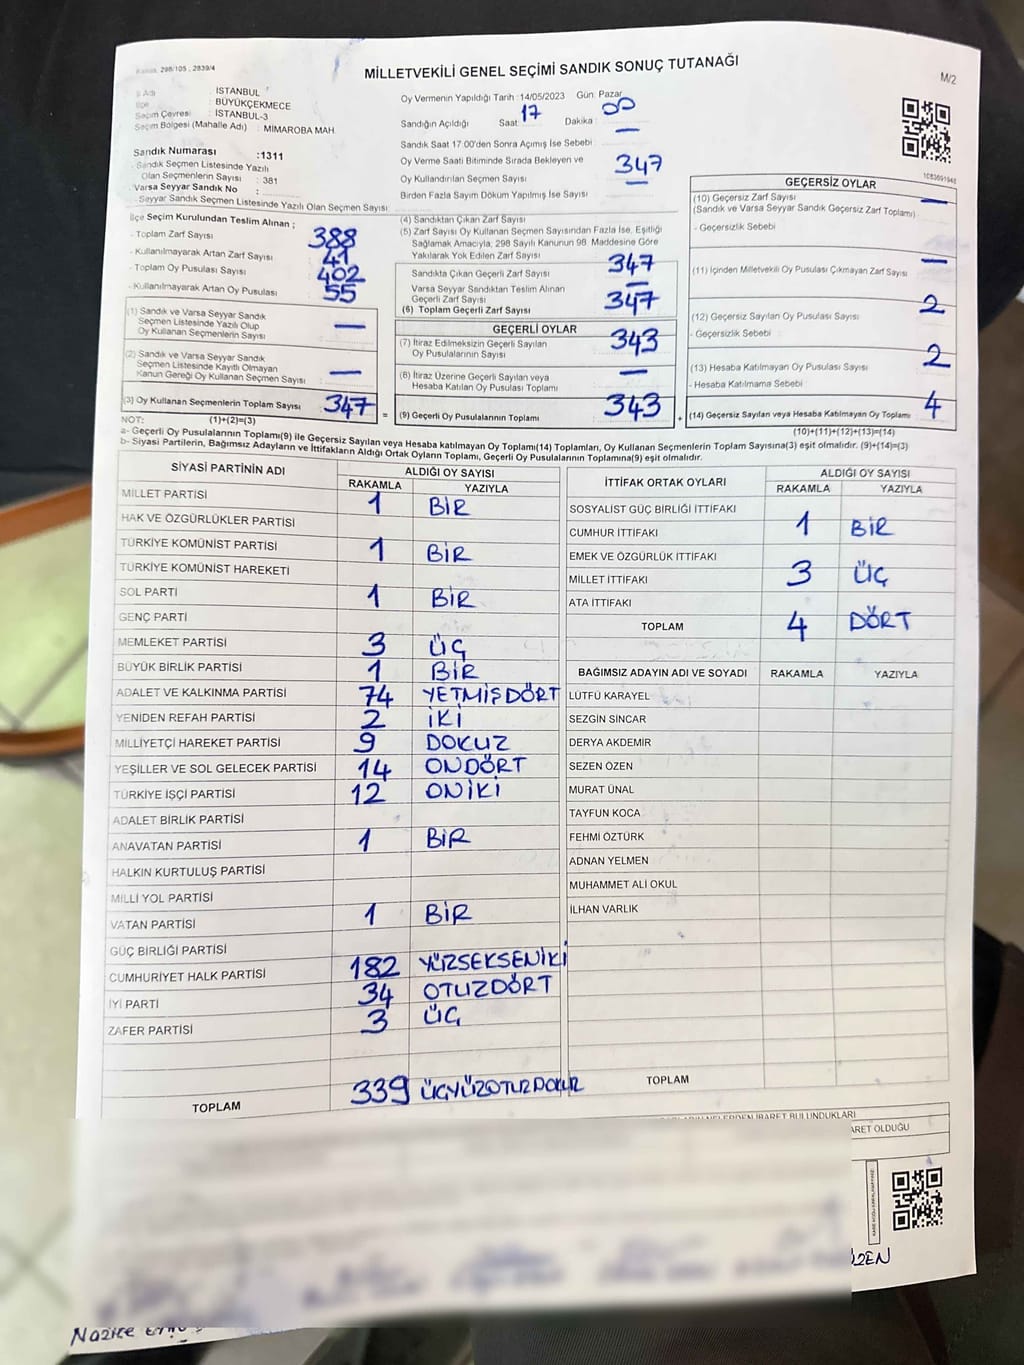 Kanun: 298/105 , 2839/4
MİLLETVEKİLİ GENEL SEÇİMİ SANDIK SONUÇ TUTANAĞI
M/2
İl Adı : İSTANBUL
İlçe : BÜYÜKÇEKMECE
Seçim Çevresi : İSTANBUL-3
Seçim Bölgesi (Mahalle Adı) : MİMAROBA MAH.
Sandık Numarası :1311
- Sandık Seçmen Listesinde Yazılı
Olan Seçmenlerin Sayısı : 381
Varsa Seyyar Sandık No :
- Seyyar Sandık Seçmen Listesinde Yazılı Olan Seçmen Sayısı :
Oy Vermenin Yapıldığı Tarih : 14/05/2023 Gün: Pazar
Sandığın Açıldığı Saat: 17 Dakika : 00
Sandık Saat 17:00'den Sonra Açımış İse Sebebi : —
Oy Verme Saati Bitiminde Sırada Bekleyen ve
Oy Kullandırılan Seçmen Sayısı 347
Birden Fazla Sayım Döküm Yapılmış İse Sayısı —
İlçe Seçim Kurulundan Teslim Alınan ;
- Toplam Zarf Sayısı 388
- Kullanılmayarak Artan Zarf Sayısı 41
- Toplam Oy Pusulası Sayısı 402
- Kullanılmayarak Artan Oy Pusulası 55
(1) Sandık ve Varsa Seyyar Sandık
Seçmen Listesinde Yazılı Olup
Oy Kullanan Seçmenlerin Sayısı —
(2) Sandık ve Varsa Seyyar Sandık
Seçmen Listesinde Kayıtlı Olmayan
Kanun Gereği Oy Kullanan Seçmen Sayısı —
(3) Oy Kullanan Seçmenlerin Toplam Sayısı 347 =
(1)+(2)=(3)
(4) Sandıktan Çıkan Zarf Sayısı
(5) Zarf Sayısı Oy Kullanan Seçmen Sayısından Fazla İse, Eşitliği
Sağlamak Amacıyla, 298 Sayılı Kanunun 98. Maddesine Göre
Yakılarak Yok Edilen Zarf Sayısı
Sandıkta Çıkan Geçerli Zarf Sayısı 347
Varsa Seyyar Sandıktan Teslim Alınan
Geçerli Zarf Sayısı —
(6) Toplam Geçerli Zarf Sayısı 347
GEÇERLİ OYLAR
(7) İtiraz Edilmeksizin Geçerli Sayılan
Oy Pusulalarının Sayısı 343
(8) İtiraz Üzerine Geçerli Sayılan veya
Hesaba Katılan Oy Pusulası Toplamı —
(9) Geçerli Oy Pusulalarının Toplamı 343 +
GEÇERSİZ OYLAR
(10) Geçersiz Zarf Sayısı —
(Sandık ve Varsa Seyyar Sandık Geçersiz Zarf Toplamı)
- Geçersizlik Sebebi
(11) İçinden Milletvekili Oy Pusulası Çıkmayan Zarf Sayısı —
(12) Geçersiz Sayılan Oy Pusulası Sayısı 2
- Geçersizlik Sebebi
(13) Hesaba Katılmayan Oy Pusulası Sayısı 2
- Hesaba Katılmama Sebebi
(14) Geçersiz Sayılan veya Hesaba Katılmayan Oy Toplamı 4
(10)+(11)+(12)+(13)=(14)
NOT:
a- Geçerli Oy Pusulalarının Toplamı(9) ile Geçersiz Sayılan veya Hesaba katılmayan Oy Toplamı(14) Toplamları, Oy Kullanan Seçmenlerin Toplam Sayısına(3) eşit olmalıdır. (9)+(14)=(3)
b- Siyasi Partilerin, Bağımsız Adayların ve İttifakların Aldığı Ortak Oyların Toplamı, Geçerli Oy Pusulalarının Toplamına(9) eşit olmalıdır.
SİYASİ PARTİNİN ADI
ALDIĞI OY SAYISI
RAKAMLA YAZIYLA
MİLLET PARTİSİ 1 BİR
HAK VE ÖZGÜRLÜKLER PARTİSİ
TÜRKİYE KOMÜNİST PARTİSİ 1 BİR
TÜRKİYE KOMÜNİST HAREKETİ
SOL PARTİ 1 BİR
GENÇ PARTİ
MEMLEKET PARTİSİ 3 ÜÇ
BÜYÜK BİRLİK PARTİSİ 1 BİR
ADALET VE KALKINMA PARTİSİ 74 YETMİŞDÖRT
YENİDEN REFAH PARTİSİ 2 İKİ
MİLLİYETÇİ HAREKET PARTİSİ 9 DOKUZ
YEŞİLLER VE SOL GELECEK PARTİSİ 14 ONDÖRT
TÜRKİYE İŞÇİ PARTİSİ 12 ONİKİ
ADALET BİRLİK PARTİSİ
ANAVATAN PARTİSİ 1 BİR
HALKIN KURTULUŞ PARTİSİ
MİLLİ YOL PARTİSİ
VATAN PARTİSİ 1 BİR
GÜÇ BİRLİĞİ PARTİSİ
CUMHURİYET HALK PARTİSİ 182 YÜZSEKSENİKİ
İYİ PARTİ 34 OTUZDÖRT
ZAFER PARTİSİ 3 ÜÇ
TOPLAM 339 ÜÇYÜZOTUZDOKUZ
İTTİFAK ORTAK OYLARI
ALDIĞI OY SAYISI
RAKAMLA YAZIYLA
SOSYALİST GÜÇ BİRLİĞİ İTTİFAKI
CUMHUR İTTİFAKI 1 BİR
EMEK VE ÖZGÜRLÜK İTTİFAKI
MİLLET İTTİFAKI 3 ÜÇ
ATA İTTİFAKI
TOPLAM 4 DÖRT
BAĞIMSIZ ADAYIN ADI VE SOYADI RAKAMLA YAZIYLA
LÜTFÜ KARAYEL
SEZGİN SİNCAR
DERYA AKDEMİR
SEZEN ÖZEN
MURAT ÜNAL
TAYFUN KOCA
FEHMİ ÖZTÜRK
ADNAN YELMEN
MUHAMMET ALİ OKUL
İLHAN VARLIK
TOPLAM
İBARET BULUNDUKLARI
ARET OLDUĞU